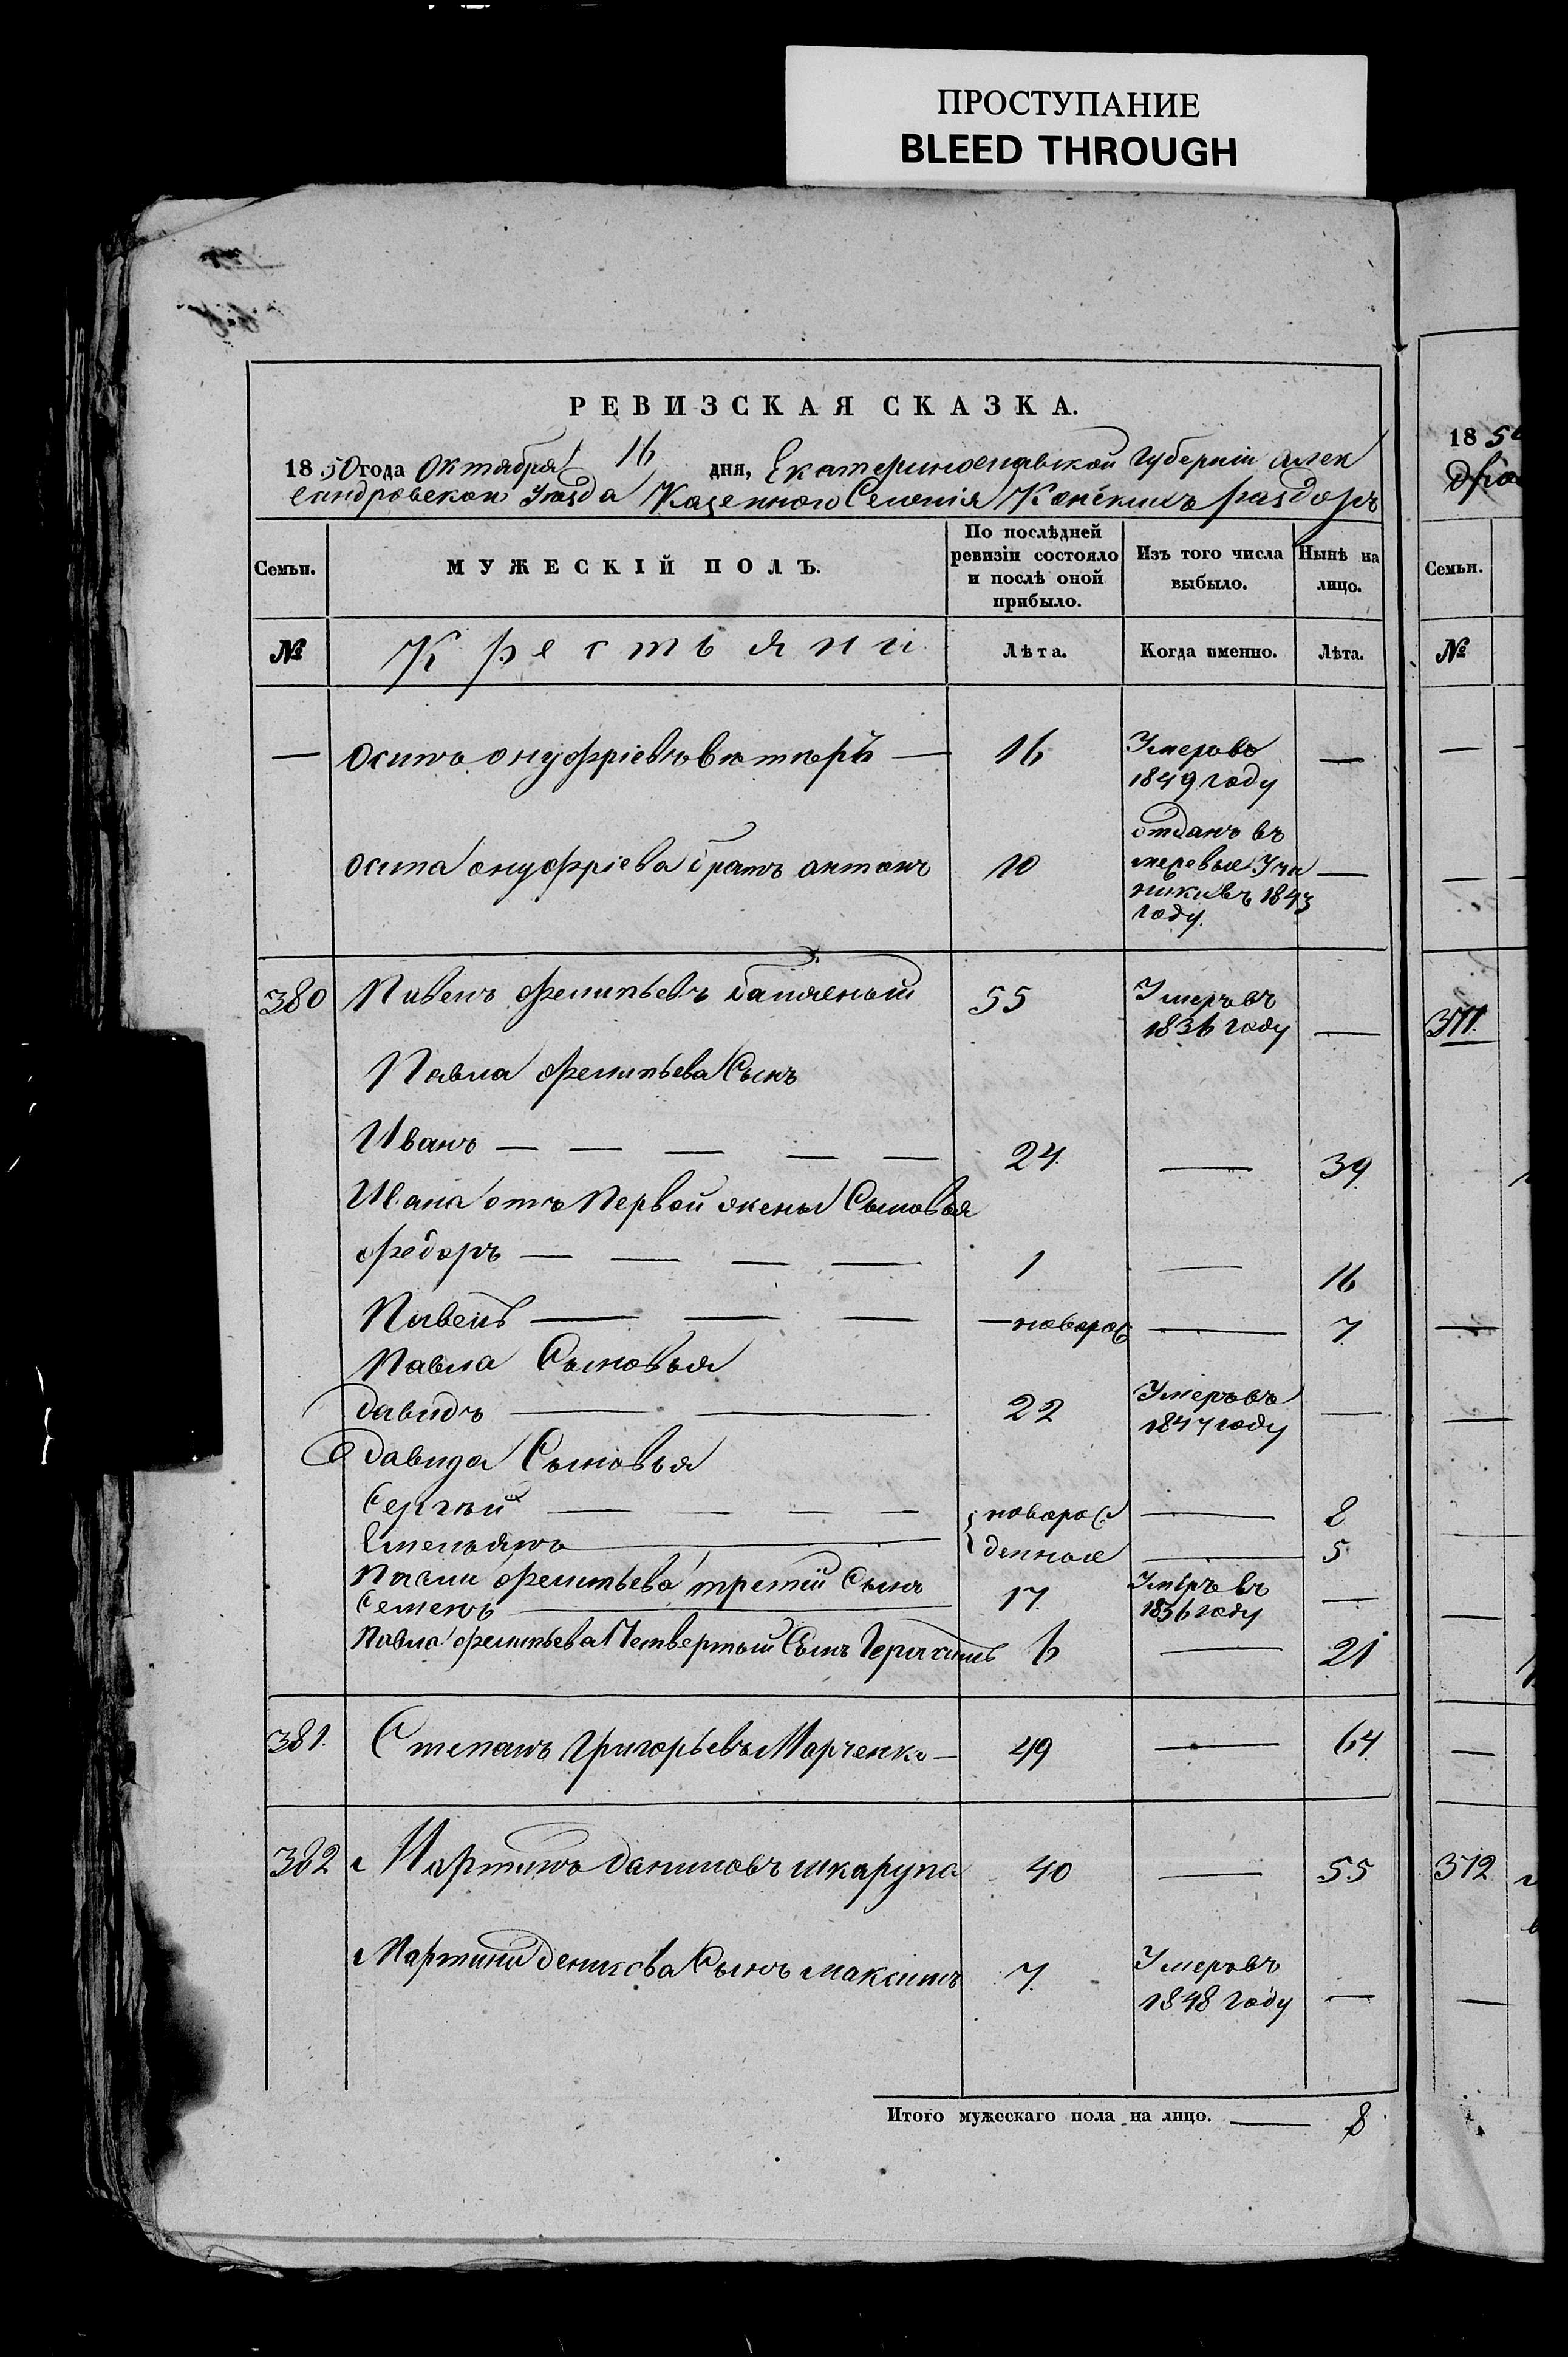 ПРОСТУПАНИЕ
BLEED THROUGH
РЕВИЗСКАЯ СКАЗКА.
1850 года Октября 16 дня, Екатеринославской Губерніи Алек
сандровскои Уезда Казенного Селенія Конскихъ раздоръ
Семьи.
МУЖЕСКІЙ ПОЛЪ.
По послѣдней ревизіи состояло и послѣ оной прибыло.
Изъ того числа выбыло.
Нынѣ на лицо.
№ Крестьяни Лѣта. Когда именно. Лѣта.
— Осипъ онуфріевъ — 16 Умеръ въ 1849 году —
осипа онуфріева братъ антонъ 10 отданъ въ 1843 году. —
380 Павелъ филипьевъ 55 Умеръ въ 1836 году —
Павла филипьева Сынъ
Иванъ — — — — — 24 — 39
Ивана отъ Первой жены Сыновья
федоръ — — — — 1 — 16
Павелъ — — — — новорож — 7
Павла Сыновья
Давидъ — — 22 Умеръ въ 1847 году —
Давида Сыновья
Сергѣй — — — — новорож — 8
Емельянъ — денные — 5
Павла филипьева третій Сынъ
Семенъ — 17 Умеръ въ 1836 году —
Павла филипьева Четвертый Сынъ Герасимъ 6 — 21
381. Степанъ Григорьевъ Марченко — 49 — 64
382 Мартинъ Даниловъ шкарупа 40 — 55
Мартина Данилова Сынъ максимъ 7 Умеръ въ 1848 году —
Итого мужескаго пола на лицо. — 8
1850
Семьи.
№
371
372